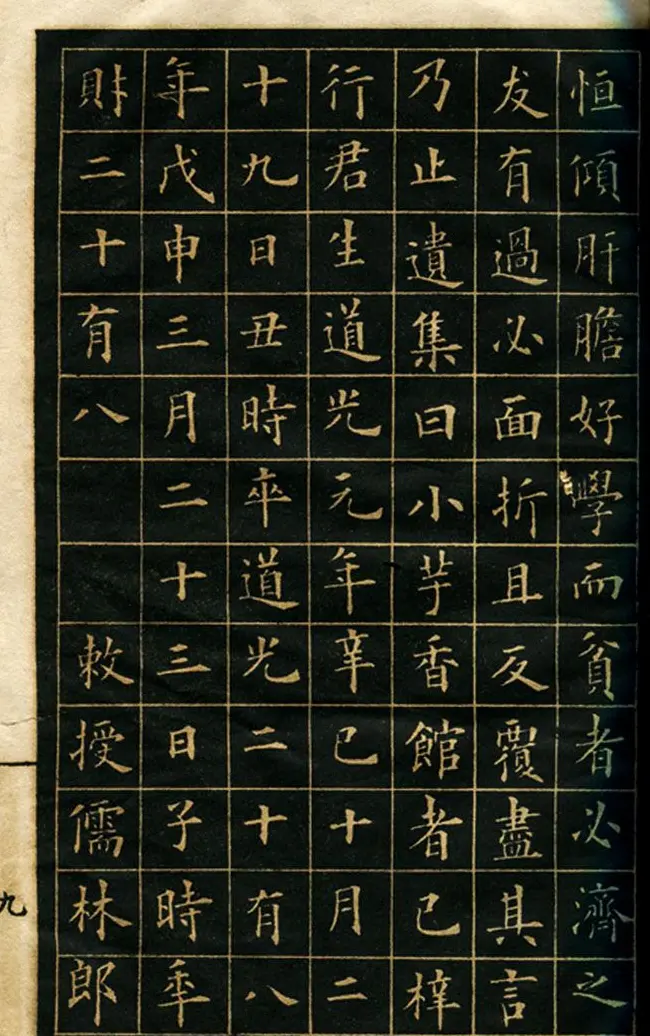 恒傾肝膽好學而貧者必濟之
友有過必面折且反覆盡其言
乃止遺集曰小芋香館者已梓
行君生道光元年辛巳十月二
十九日丑時卒道光二十有八
年戊申三月二十三日子時年
財二十有八 敕授儒林郎
九